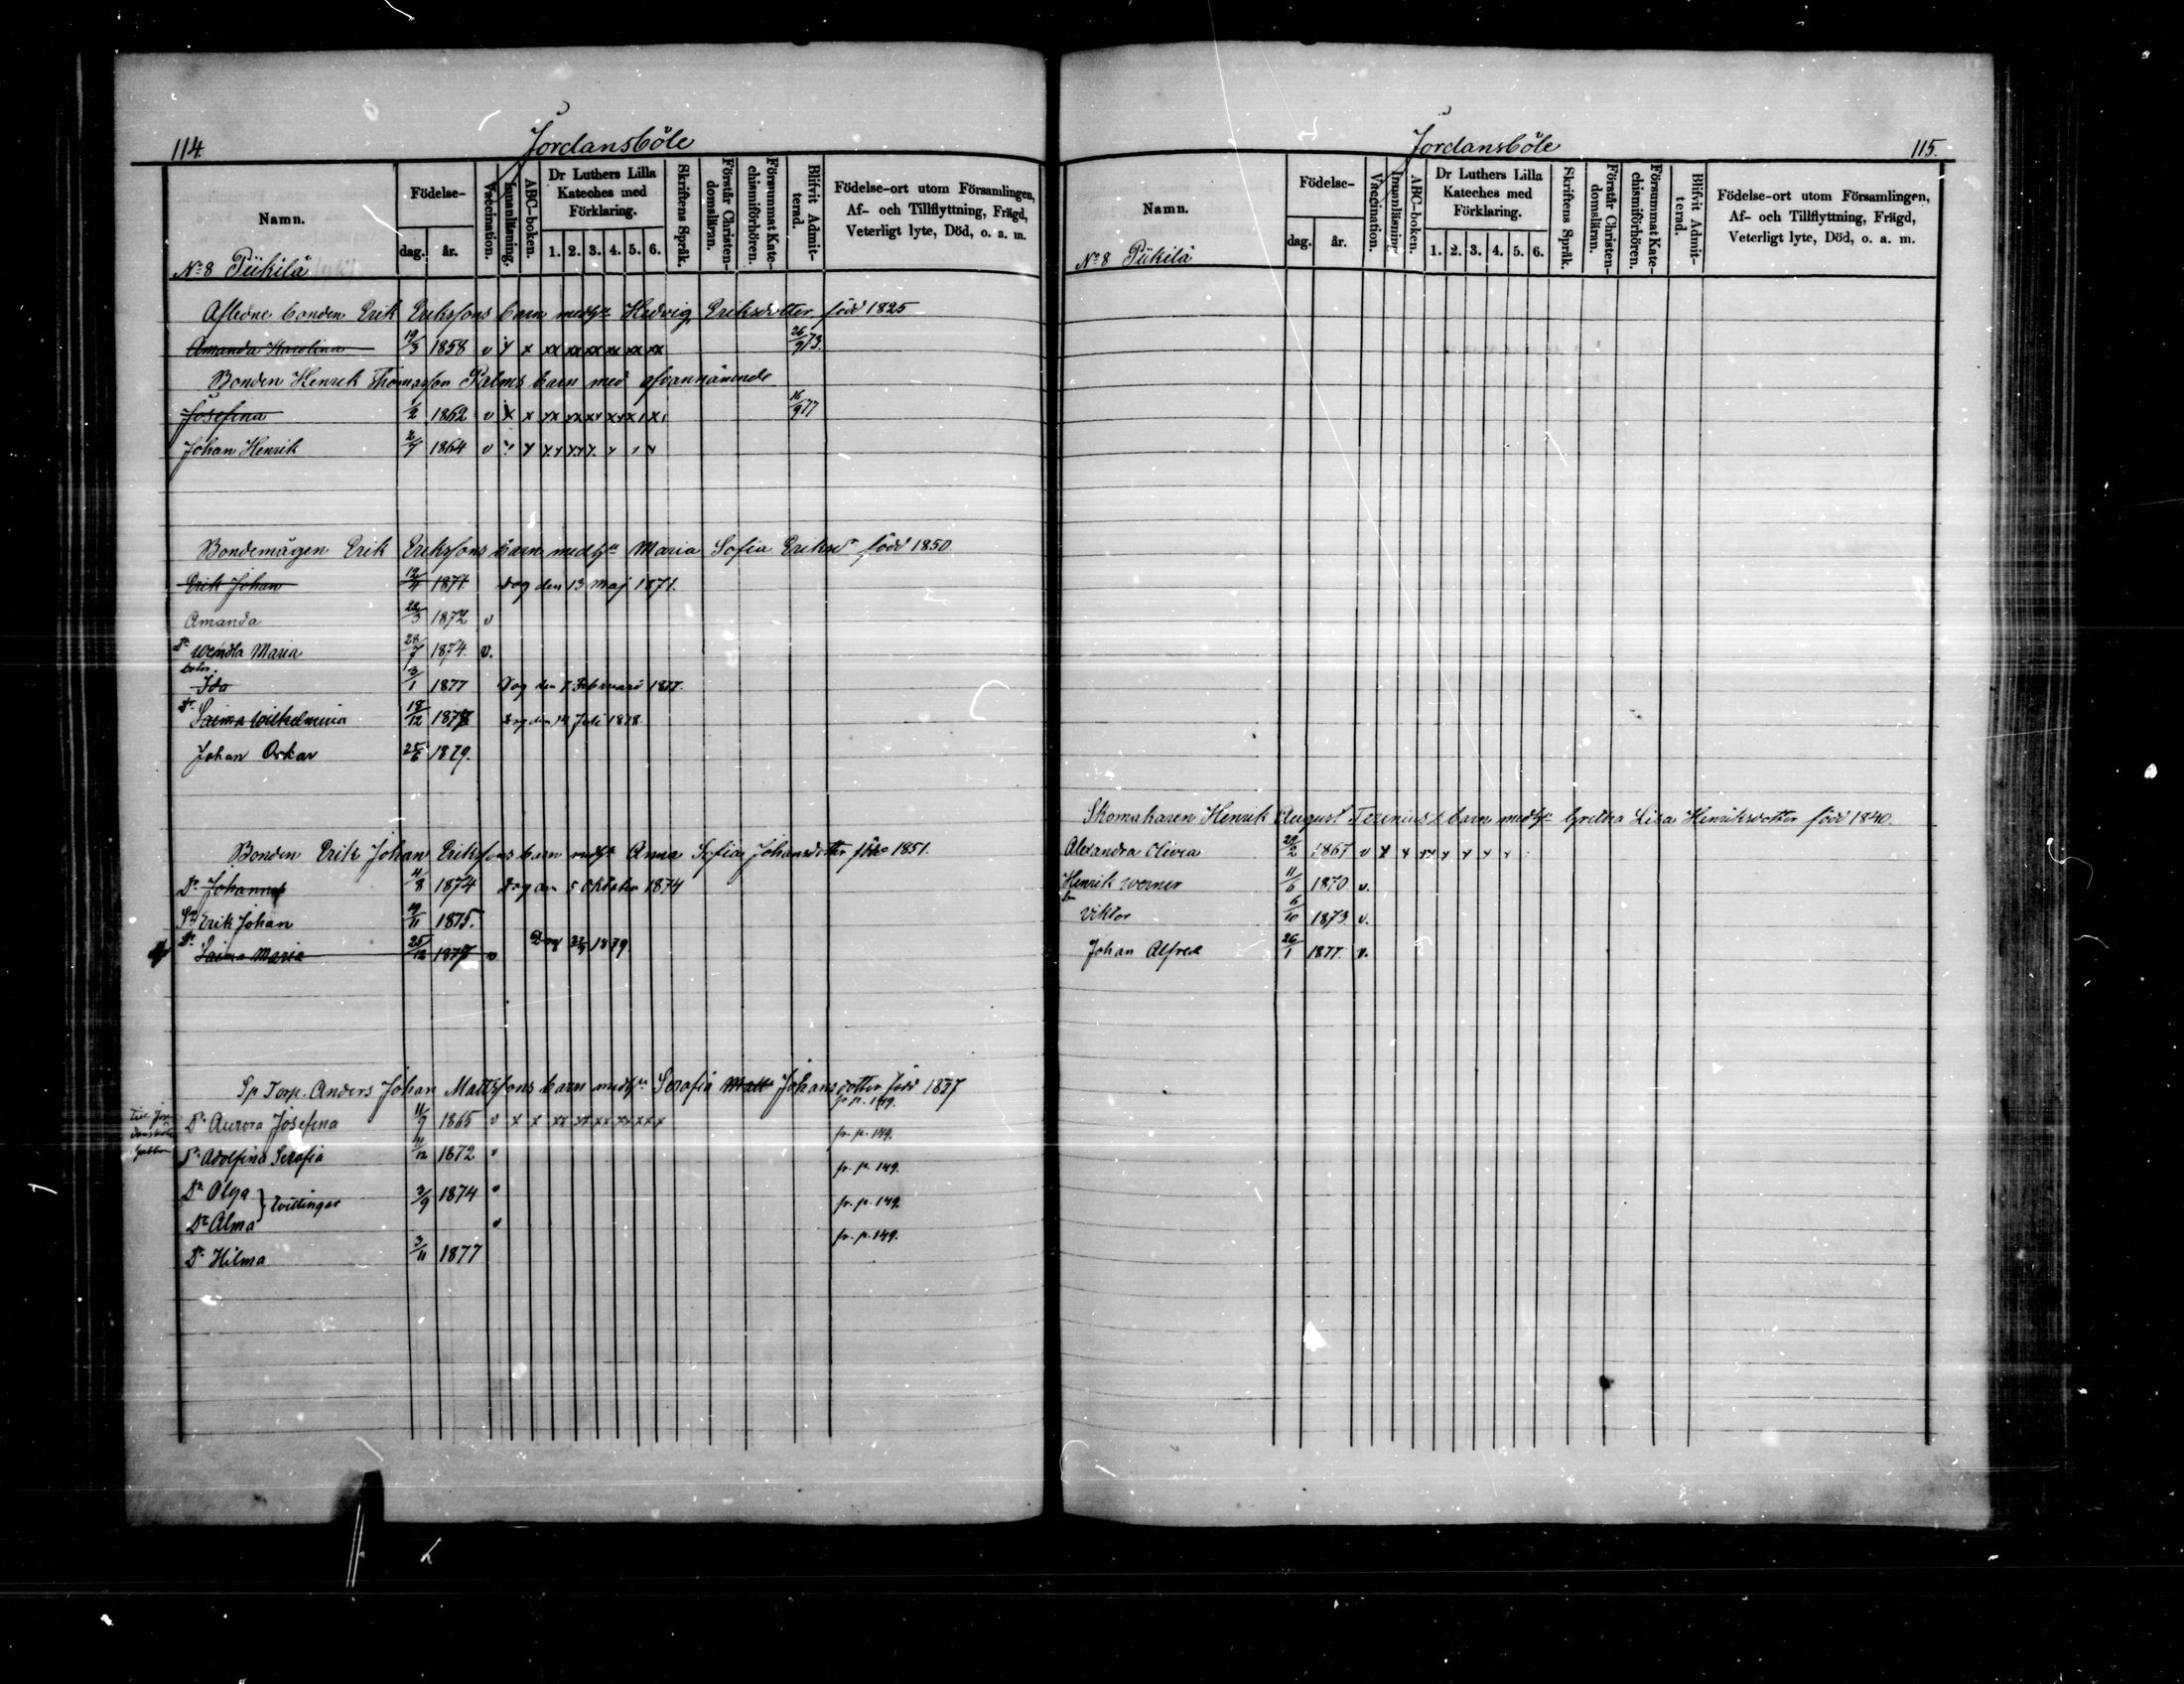 114.
Jordansböle
Namn.
Födelse-
dag.
år.
Vaccination.
Innanläsning.
ABC-boken.
Dr Luthers Lilla Kateches med Förklaring.
1. 2. 3. 4. 5. 6.
Skriftens Språk.
Förstår Christendomsläran.
Försummat Katechismiförhören.
Blifvit Admitterad.
Födelse-ort utom Församlingen,
Af- och Tillflyttning, Frägd,
Veterligt lyte, Död, o. a. m.
No 8 Piikilä
Afledne bonden Erik Erikssons barn med h. Hedvig Eriksdotter född 1825
Amanda Karolina 19/3 1858 v x x xx xx xx xx xx xx 26/9 73.
Bonden Henrik Thomasson Palms barn med ofvannämnde
Josefina 1/2 1862 v x x xx xx xx xx x x 16/9 77
Johan Henrik 2/7 1864 v
Bondemågen Erik Erikssons barn med h. Maria Sofia Eriksdr född 1850
Erik Johan 19/4 1871 Dog den 13 Maj 1871.
Amanda 22/3 1872 v
Dr Wendla Maria 28/7 1874 v.
Ida 3/1 1877 Dog den 7 Februari 1877.
Dr Saima Wilhelmina 18/12 1877 Dog den 14 Juli 1878
Johan Oskar 25/6 1879.
Bonden Erik Johan Erikssons barn med h. Anna Sofia Johansdotter född 1851.
Dr Johanna 4/8 1874 Dog den 5 Oktober 1874
Sn Erik Johan 19/11 1875.
Dr Saima Maria 25/12 1877 v Dog 1879
Sp Torp. Anders Johan Mattssons barn med h. Serafia Matt Johansdotter född 1837
Dr Aurora Josefina 11/9 1865 v x x xx xx xx xx x x fr. p. 149.
Dr Adolfina Serafia 11/12 1872 v fr. p. 149.
Dr Olga } tvillingar 3/9 1874 v fr. p. 149.
Dr Alma v fr. p. 149.
Dr Hilma 3/11 1877 fr. p. 149.
Jordansböle
115.
Namn.
Födelse-
dag.
år.
Vaccination.
Innanläsning.
ABC-boken.
Dr Luthers Lilla Kateches med Förklaring.
1. 2. 3. 4. 5. 6.
Skriftens Språk.
Förstår Christendomsläran.
Försummat Katechismiförhören.
Blifvit Admitterad.
Födelse-ort utom Församlingen,
Af- och Tillflyttning, Frägd,
Veterligt lyte, Död, o. a. m.
No 8 Piikilä
Skomakaren Henrik August barn med h. Gretha Lisa Henriksdotter född 1840.
Alexandra Olivia 1867 v x x xx x x x x
Henrik Werner 11/6 1870 v.
Viktor 6/10 1873. v.
Johan Alfred 26/1 1877. v.